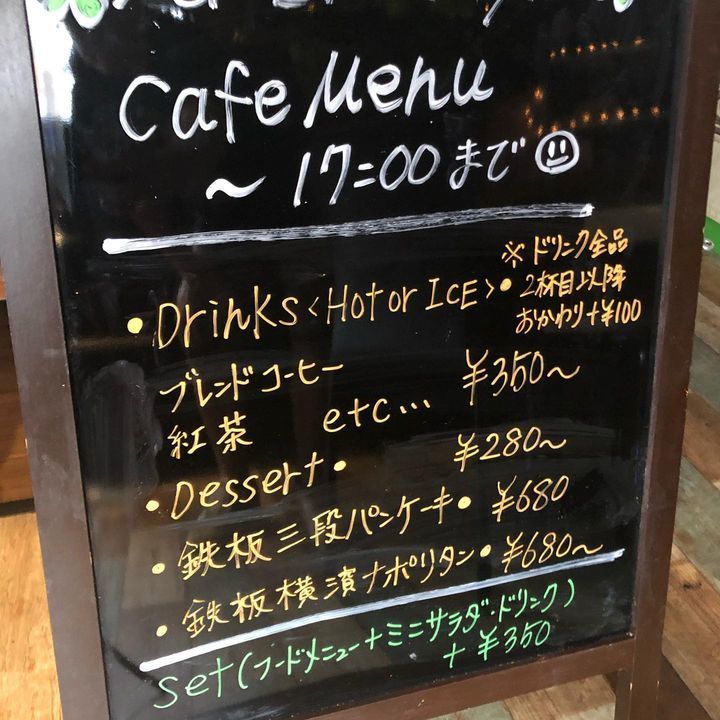 Cafe Menu
～ 17:00 まで
• Drinks <Hot or ICE> •
※ ドリンク全品
2杯目以降
おかわり+¥100
ブレンドコーヒー
紅茶 etc... ¥350～
• Dessert • ¥280～
• 鉄板三段パンケーキ • ¥680
• 鉄板横濱ナポリタン • ¥680～
set(フードメニュー+ミニサラダ・ドリンク)
+ ¥350